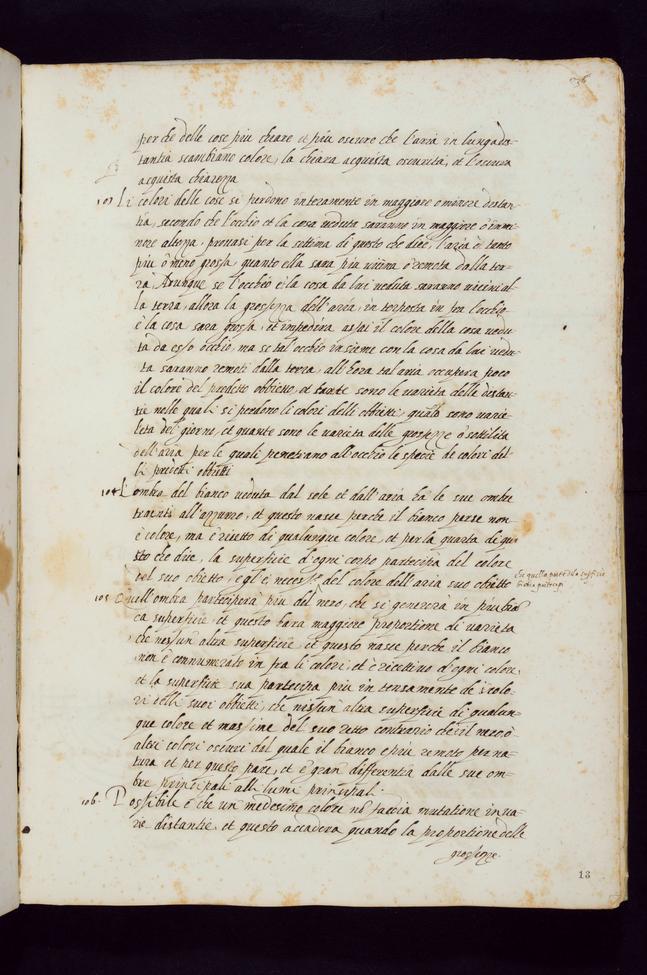 36
perche delle cose piu chiare et piu oscure che l'aria in lunga dis-
tantia scambiano colore, la chiara acquista oscurità, et l'oscura
acquista chiarezza
103 Li colori delle cose si perdono interamente in maggiore o minore distan-
tia, secondo che l'occhio et la cosa veduta saranno in maggiore ò in mi-
nore altezza. provasi per la settima di questo che dice, l'aria è tanto
piu ò meno grossa, quanto ella sara piu vicina ò remota dalla ter-
ra, Adunque se l'occhio e la cosa da lui veduta saranno vicini al-
la terra, allora la grossezza dell'aria, in terposta in fra l'occhio
è la cosa sara grossa, et impedira assai il colore della cosa vedu-
ta da esso occhio, ma se tal occhio insieme con la cosa da lui vedu-
ta saranno remoti dalla terra, all'hora tal aria occupera poco
il colore del predetto obbietto, et tante sono le varieta delle distan-
tie nelle quali si perdono li colori delli obbietti, quali sono varie-
tà del giorno, et quante sono le varieta delle grossezze ò sottilità
dell'aria per le quali penetrano all'occhio le specie de colori del-
li predetti obbietti
104 L'ombra del bianco veduta dal sole et dall'aria ha le sue ombre
traenti all'azzurro, et questo nasce perche il bianco perse non
è colore, ma è ricetto di qualunque colore, et per la quarta di que-
sto che dice, la superficie d'ogni corpo partecipa del colore
del suo obietto, egl'è necess.o del colore dell'aria suo obietto
che quella parte della superficie
105 Quell'ombra parteciperà piu del nero, che si generera in piu bian-
ca superficie, et questo hara maggiore proportione di varietà
che nessun altra superficie, et questo nasce perche il bianco
non è connumerato in fra li colori, et è ricettivo d'ogni colore,
et la superficie sua partecipa piu in tensamente de i colo-
ri delli suoi obbietti, che nissun altra superficie di qualun-
que colore et massime del suo retto contrario che è il nero, ò
altri colori oscuri dal quale il bianco è piu remoto per na-
tura, et per questo pare, et è gran differentia dalle sue om-
bre principali alli lumi principali.
106. Possibile è che un medesimo colore nō faccia mutatione in va-
rie distantie, et questo accadera quando la proportione delle
grossezze.
18